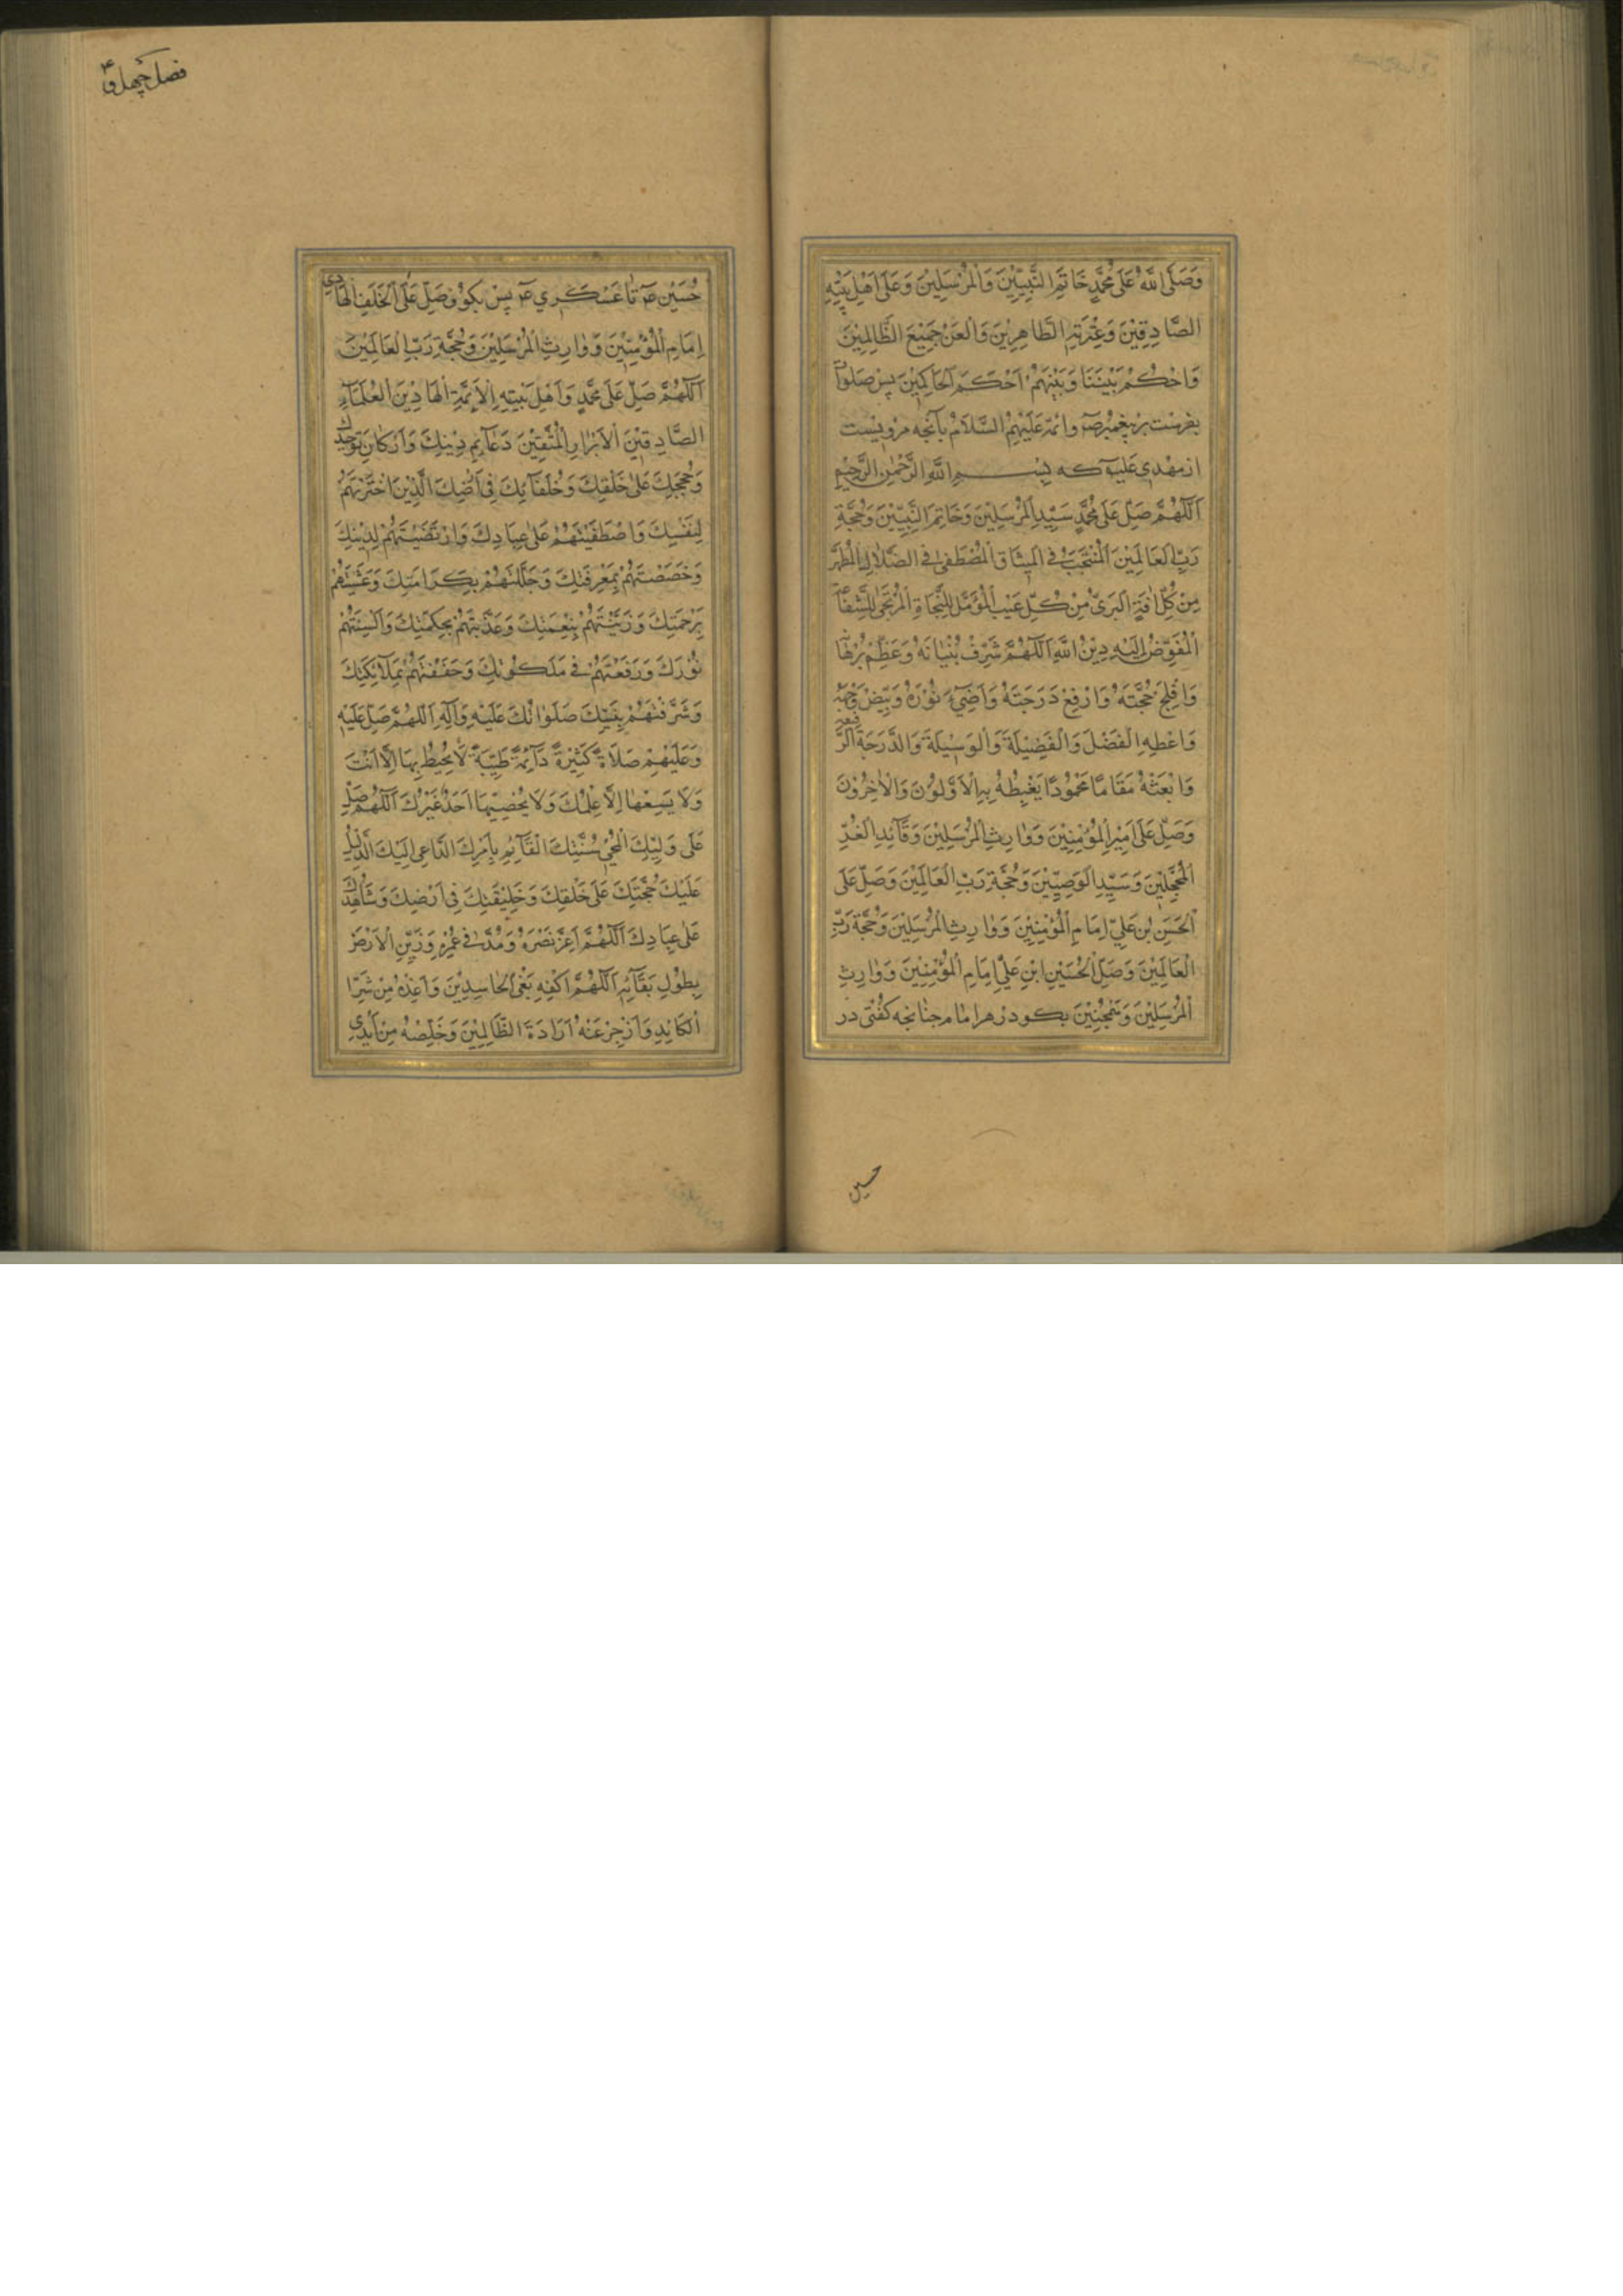 وَصَلَّى اللَّهُ عَلَى مُحَمَّدٍ خَاتَمِ النَّبِيِّينَ وَالْمُرْسَلِينَ وَعَلَى اَهْلِ بَيْتِهِ
الصَّادِقِيْنَ وَعِتْرَتِهِ الطَّاهِرِيْنَ وَالْعَنْ جَمِيْعَ الظَّالِمِيْنَ
وَاحْكُمْ بَيْنَنَا وَبَيْنَهُمْ اَحْكَمَ الْحَاكِمِيْنَ پس صلوات
بفرست بر پیغمبر صه وائمه عَلَيْهِمُ السَّلَامُ بآنچه مرویست
از مهدی علیه که بِسْمِ اللَّهِ الرَّحْمٰنِ الرَّحِيْمِ
اَللّٰهُمَّ صَلِّ عَلَى مُحَمَّدٍ سَيِّدِ الْمُرْسَلِيْنَ وَخَاتَمِ النَّبِيِّيْنَ وَحُجَّةِ
رَبِّ الْعَالَمِيْنَ الْمُنْتَجَبِ فِي الْمِيْثَاقِ الْمُصْطَفٰى فِي الضَّلَالِ الْمُطَهَّرِ
مِنْ كُلِّ اٰفَةٍ الْبَرِيْءِ مِنْ كُلِّ عَيْبٍ الْمُؤَمَّلِ لِلنَّجَاةِ الْمُرْتَجٰى لِلشَّفَاعَةِ
الْمُفَوَّضِ اِلَيْهِ دِيْنُ اللَّهِ اَللّٰهُمَّ شَرِّفْ بُنْيَانَهُ وَعَظِّمْ بُرْهَانَهُ
وَافْلِجْ حُجَّتَهُ وَارْفَعْ دَرَجَتَهُ وَاَضِيْءْ نُوْرَهُ وَبَيِّضْ وَجْهَهُ
وَاعْطِهِ الْفَضْلَ وَالْفَضِيْلَةَ وَالْوَسِيْلَةَ وَالدَّرَجَةَ الرَّفِيْعَةَ
وَابْعَثْهُ مَقَامًا مَحْمُوْدًا يَغْبِطُهُ بِهِ الْاَوَّلُوْنَ وَالْاٰخِرُوْنَ
وَصَلِّ عَلَى اَمِيْرِ الْمُؤْمِنِيْنَ وَوَارِثِ الْمُرْسَلِيْنَ وَقَآئِدِ الْغُرِّ
الْمُحَجَّلِيْنَ وَسَيِّدِ الْوَصِيِّيْنَ وَحُجَّةِ رَبِّ الْعَالَمِيْنَ وَصَلِّ عَلَى
الْحَسَنِ بْنِ عَلِيٍّ اِمَامِ الْمُؤْمِنِيْنَ وَوَارِثِ الْمُرْسَلِيْنَ وَحُجَّةِ رَبِّ
الْعَالَمِيْنَ وَصَلِّ الْحُسَيْنِ ابْنِ عَلِيٍّ اِمَامِ الْمُؤْمِنِيْنَ وَوَارِثِ
الْمُرْسَلِيْنَ وَهَمْچُنِيْنَ بكو در هر امام چنانچه كفتی در
حسین
فصل چهل و
حُسَيْن صه تا عَسْكَرِي صه پس بكو وَصَلِّ عَلَى الْخَلَفِ الْهَادِي
اِمَامِ الْمُؤْمِنِيْنَ وَوَارِثِ الْمُرْسَلِيْنَ وَحُجَّةِ رَبِّ الْعَالَمِيْنَ
اَللّٰهُمَّ صَلِّ عَلَى مُحَمَّدٍ وَاَهْلِ بَيْتِهِ الْاَئِمَّةِ الْهَادِيْنَ الْعُلَمَآءِ
الصَّادِقِيْنَ الْاَبْرَارِ الْمُتَّقِيْنَ دَعَآئِمِ دِيْنِكَ وَاَرْكَانِ تَوْحِيْدِكَ
وَحُجَجِكَ عَلَى خَلْقِكَ وَخُلَفَآئِكَ فِي اَرْضِكَ الَّذِيْنَ اخْتَرْتَهُمْ
لِنَفْسِكَ وَاصْطَفَيْتَهُمْ عَلَى عِبَادِكَ وَارْتَضَيْتَهُمْ لِدِيْنِكَ
وَخَصَصْتَهُمْ بِمَعْرِفَتِكَ وَجَلَّلْتَهُمْ بِكَرَامَتِكَ وَغَشَّيْتَهُمْ
بِرَحْمَتِكَ وَزَيَّنْتَهُمْ بِنِعْمَتِكَ وَغَذَّيْتَهُمْ بِحِكْمَتِكَ وَاَلْبَسْتَهُمْ
نُوْرَكَ وَرَفَعْتَهُمْ فِي مَلَكُوْتِكَ وَحَفَفْتَهُمْ بِمَلَآئِكَتِكَ
وَشَرَّفْتَهُمْ بِنَبِيِّكَ صَلَوَاتُكَ عَلَيْهِ وَاٰلِهِ اَللّٰهُمَّ صَلِّ عَلَيْهِ
وَعَلَيْهِمْ صَلَاةً كَثِيْرَةً دَآئِمَةً طَيِّبَةً لَا يُحِيْطُ بِهَا اِلَّا اَنْتَ
وَلَا يَسَعُهَا اِلَّا عِلْمُكَ وَلَا يُحْصِيْهَا اَحَدٌ غَيْرُكَ اَللّٰهُمَّ صَلِّ
عَلَى وَلِيِّكَ الْمُحْيِي سُنَّتِكَ الْقَآئِمِ بِاَمْرِكَ الدَّاعِي اِلَيْكَ الدَّلِيْلِ
عَلَيْكَ حُجَّتِكَ عَلَى خَلْقِكَ وَخَلِيْفَتِكَ فِي اَرْضِكَ وَشَاهِدِكَ
عَلَى عِبَادِكَ اَللّٰهُمَّ اَعِزَّ نَصْرَهُ وَمُدَّ فِي عُمْرِهِ وَزَيِّنِ الْاَرْضَ
بِطُوْلِ بَقَآئِهِ اَللّٰهُمَّ اكْفِهِ بَغْيَ الْحَاسِدِيْنَ وَاَعِذْهُ مِنْ شَرِّ ا
لْكَائِدِ وَازْجُرْ عَنْهُ اَرَادَةَ الظَّالِمِيْنَ وَخَلِّصْهُ مِنْ اَيْدِي